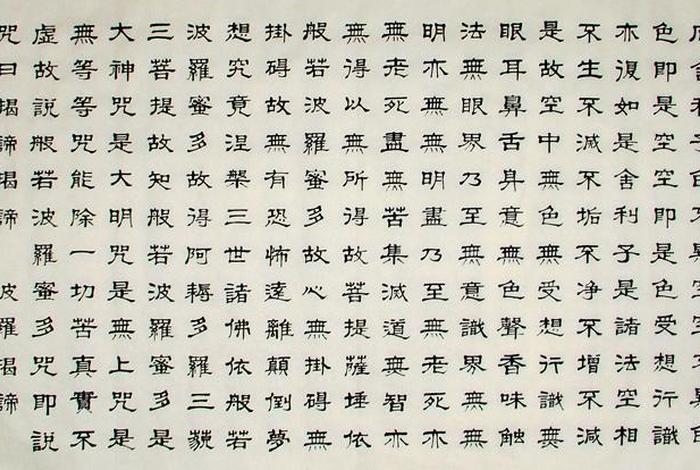 色即是空空即是色受想行識
亦復如是舍利子是諸法空相
不生不滅不垢不净不增不減
是故空中無色無受想行識無
眼耳鼻舌身意無色聲香味触
法無眼界乃至無意識界無無
明亦無無明盡乃至無老死亦
無老死盡無苦集滅道無智亦
無得以無所得故菩提薩埵依
般若波羅蜜多故心無掛碍無
掛碍故無有恐怖遠離顛倒夢
想究竟涅槃三世諸佛依般若
波羅蜜多故得阿耨多羅三藐
三菩提故知般若波羅蜜多是
大神咒是大明咒是無上咒是
無等等咒能除一切苦真實不
虛故說般若波羅蜜多咒即說
咒曰揭諦揭諦 波羅揭諦